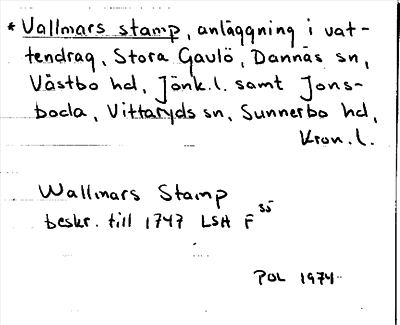 * Vallmars stamp, anläggning i vat-
tendrag, Stora Gaulö, Dannäs sn,
Västbo hd, Jönk.l. samt Jons-
boda, Vittaryds sn, Sunnerbo hd,
Kron.l.
Wallmars Stamp
beskr. till 1747 LSH F 35
POL 1974